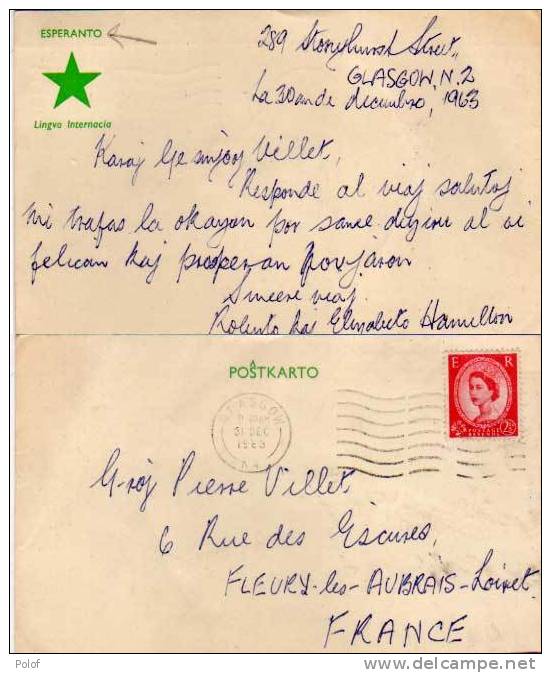 ESPERANTO
Lingvo Internacia
289 Stonyhurst Street,
GLASGOW, N.2
La 30an de decembro, 1963
Karaj Gesinjoroj Villet,
Responde al viaj salutoj
mi trafas la okazon por same deziri al vi
felican kaj prosperan Novjaron
Sincere viaj
Roberto kaj Elizabeto Hamilton
POŜTKARTO
E R
POSTAGE
REVENUE
2½
GLASGOW
31 DEC
1963
G-roj Pierre Villet
6 Rue des Écuses,
FLEURY-les-AUBRAIS-Loiret.
FRANCE
Polof
www.delcampe.net